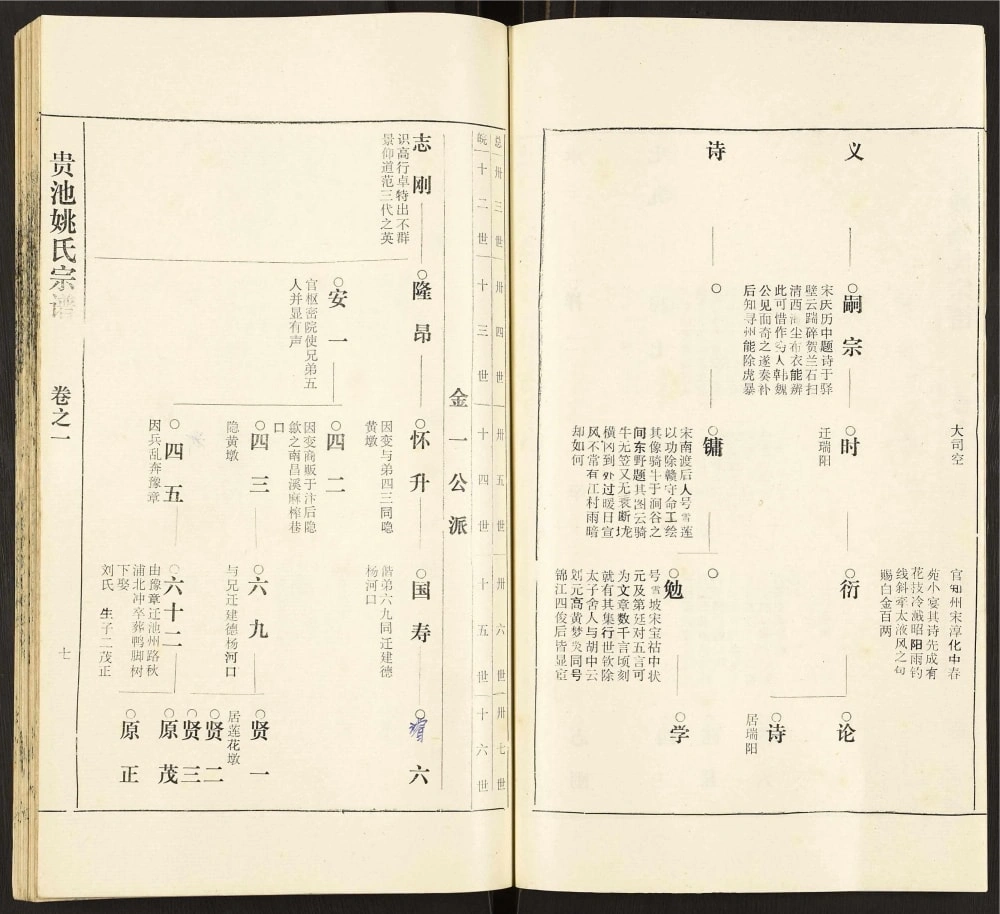 大司空
官知州宋淳化中春
苑小宴其诗先成有
花技冷溅昭阳雨钓
线斜牵太液风之句
赐白金百两
义
嗣宗
宋庆历中题诗于驿
壁云踹碎贺兰石扫
清西海尘布衣能辨
此可惜作穷人韩魏
公见而奇之遂奏补
后知寻州能除虎暴
时
迁瑞阳
衍
论
诗
居瑞阳
诗
镛
宋南渡后人号雪莲
以功除赣守命工绘
其像骑牛于涧谷之
间东野题其图云骑
牛无笠又无蓑断垅
横冈到处过暖日宣
风不常有江村雨暗
却如何
勉
号雪坡宋宝祐中状
元及第廷对五言可
为文章数千言顷刻
就有其集行世钦除
太子舍人与胡中云
刘元高黄梦炎同号
锦江四俊后皆显宦
学
总
卅三世
卅四世
卅五世
卅六世
卅七世
皖
十二世
十三世
十四世
十五世
十六世
金一公派
志刚
识高行卓特出不群
景仰道范三代之英
隆昂
怀升
因变与弟四三同隐
黄墩
国寿
偕弟六九同迁建德
杨河口
六
安一
官枢密院使兄弟五
人并显有声
四二
因变商贩于汴后隐
歙之南昌溪麻榨巷
口
四三
隐黄墩
六九
与兄迁建德杨河口
贤一
居莲花墩
贤二
贤三
四五
因兵乱奔豫章
六十二
由豫章迁池州路秋
浦北冲卒葬鸭脚树
下娶
刘氏 生子二茂正
原茂
原正
贵池姚氏宗谱
卷之一
七